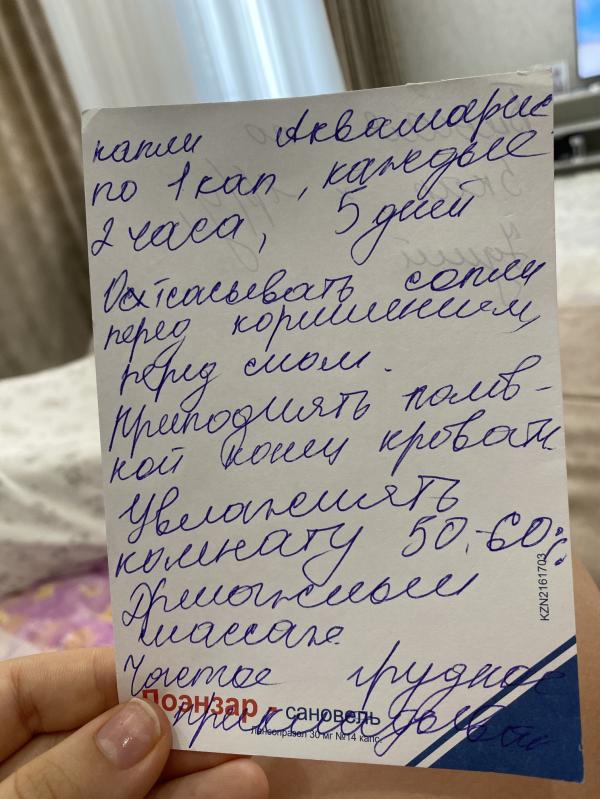 капли Аквамарис
по 1 кап, каждые
2 часа, 5 дней
Отсасывать сопли
перед кормлением,
перед сном.
Приподнять голов-
ной конец кровати
Увлажнять
комнату 50-60%
Дренажный
массаж
Частое грудное
прикладывание
Лоэнзар - сановель
лансопразол 30 мг №14 капс.
KZN2161703